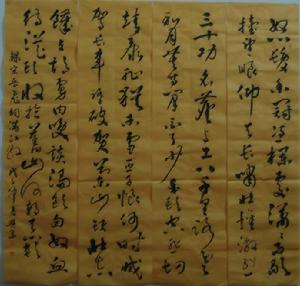 怒髮衝冠憑欄處瀟瀟雨歇
抬望眼仰天長嘯壯懷激烈
三十功名塵與土八千里路雲
和月莫等閒白了少年頭空悲切
靖康恥猶未雪臣子恨何時滅
駕長車踏破賀蘭山缺壯志
饑餐胡虜肉笑談渴飲匈奴血
待從頭收拾舊山河朝天闕
錄宋岳飛詞滿江紅